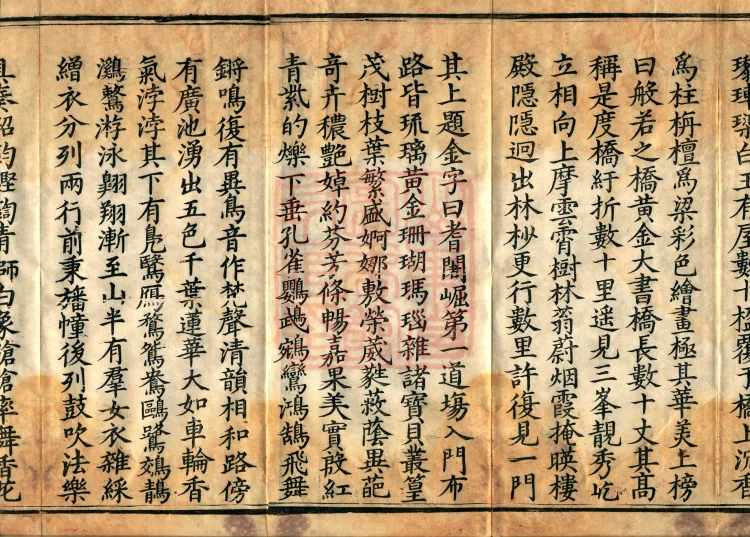 為柱栴檀為梁彩色繪畫極其華美上榜
曰般若之橋黃金大書橋長數十丈其高
稱是度橋紆折數十里遙見三峯靚秀屹
立相向上摩雲霄樹林蓊蔚烟霞掩暎樓
殿隱隱迥出林杪更行數里許復見一門
其上題金字曰耆闍崛第一道場入門布
路皆琉璃黃金珊瑚瑪瑙雜諸寶貝叢篁
茂樹枝葉繁盛婀娜敷榮葳蕤蔭異葩
奇卉穠艷婥約芬芳條暢嘉果美實殷紅
青紫的爍下垂孔雀鸚鵡鵷鸞鴻鵠飛舞
鏘鳴復有異鳥音作梵聲清韻相和路傍
有廣池湧出五色千葉蓮華大如車輪香
氣浡浡其下有鳧鷖鴈鶩鴛鴦鷗鷺鵁鶄
鸂鷘游泳翺翔漸至山半有羣女衣雜綵
繒衣分列兩行前秉旛幢後列鼓吹法樂